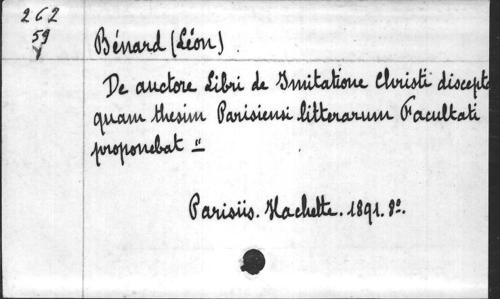 262
59
Bénard (Léon)
De auctore Libri de Imitatione Christi discepta
quam thesim Parisiensi litterarum Facultati
proponebat "
Parisiis. Hachette. 1891. 8º.